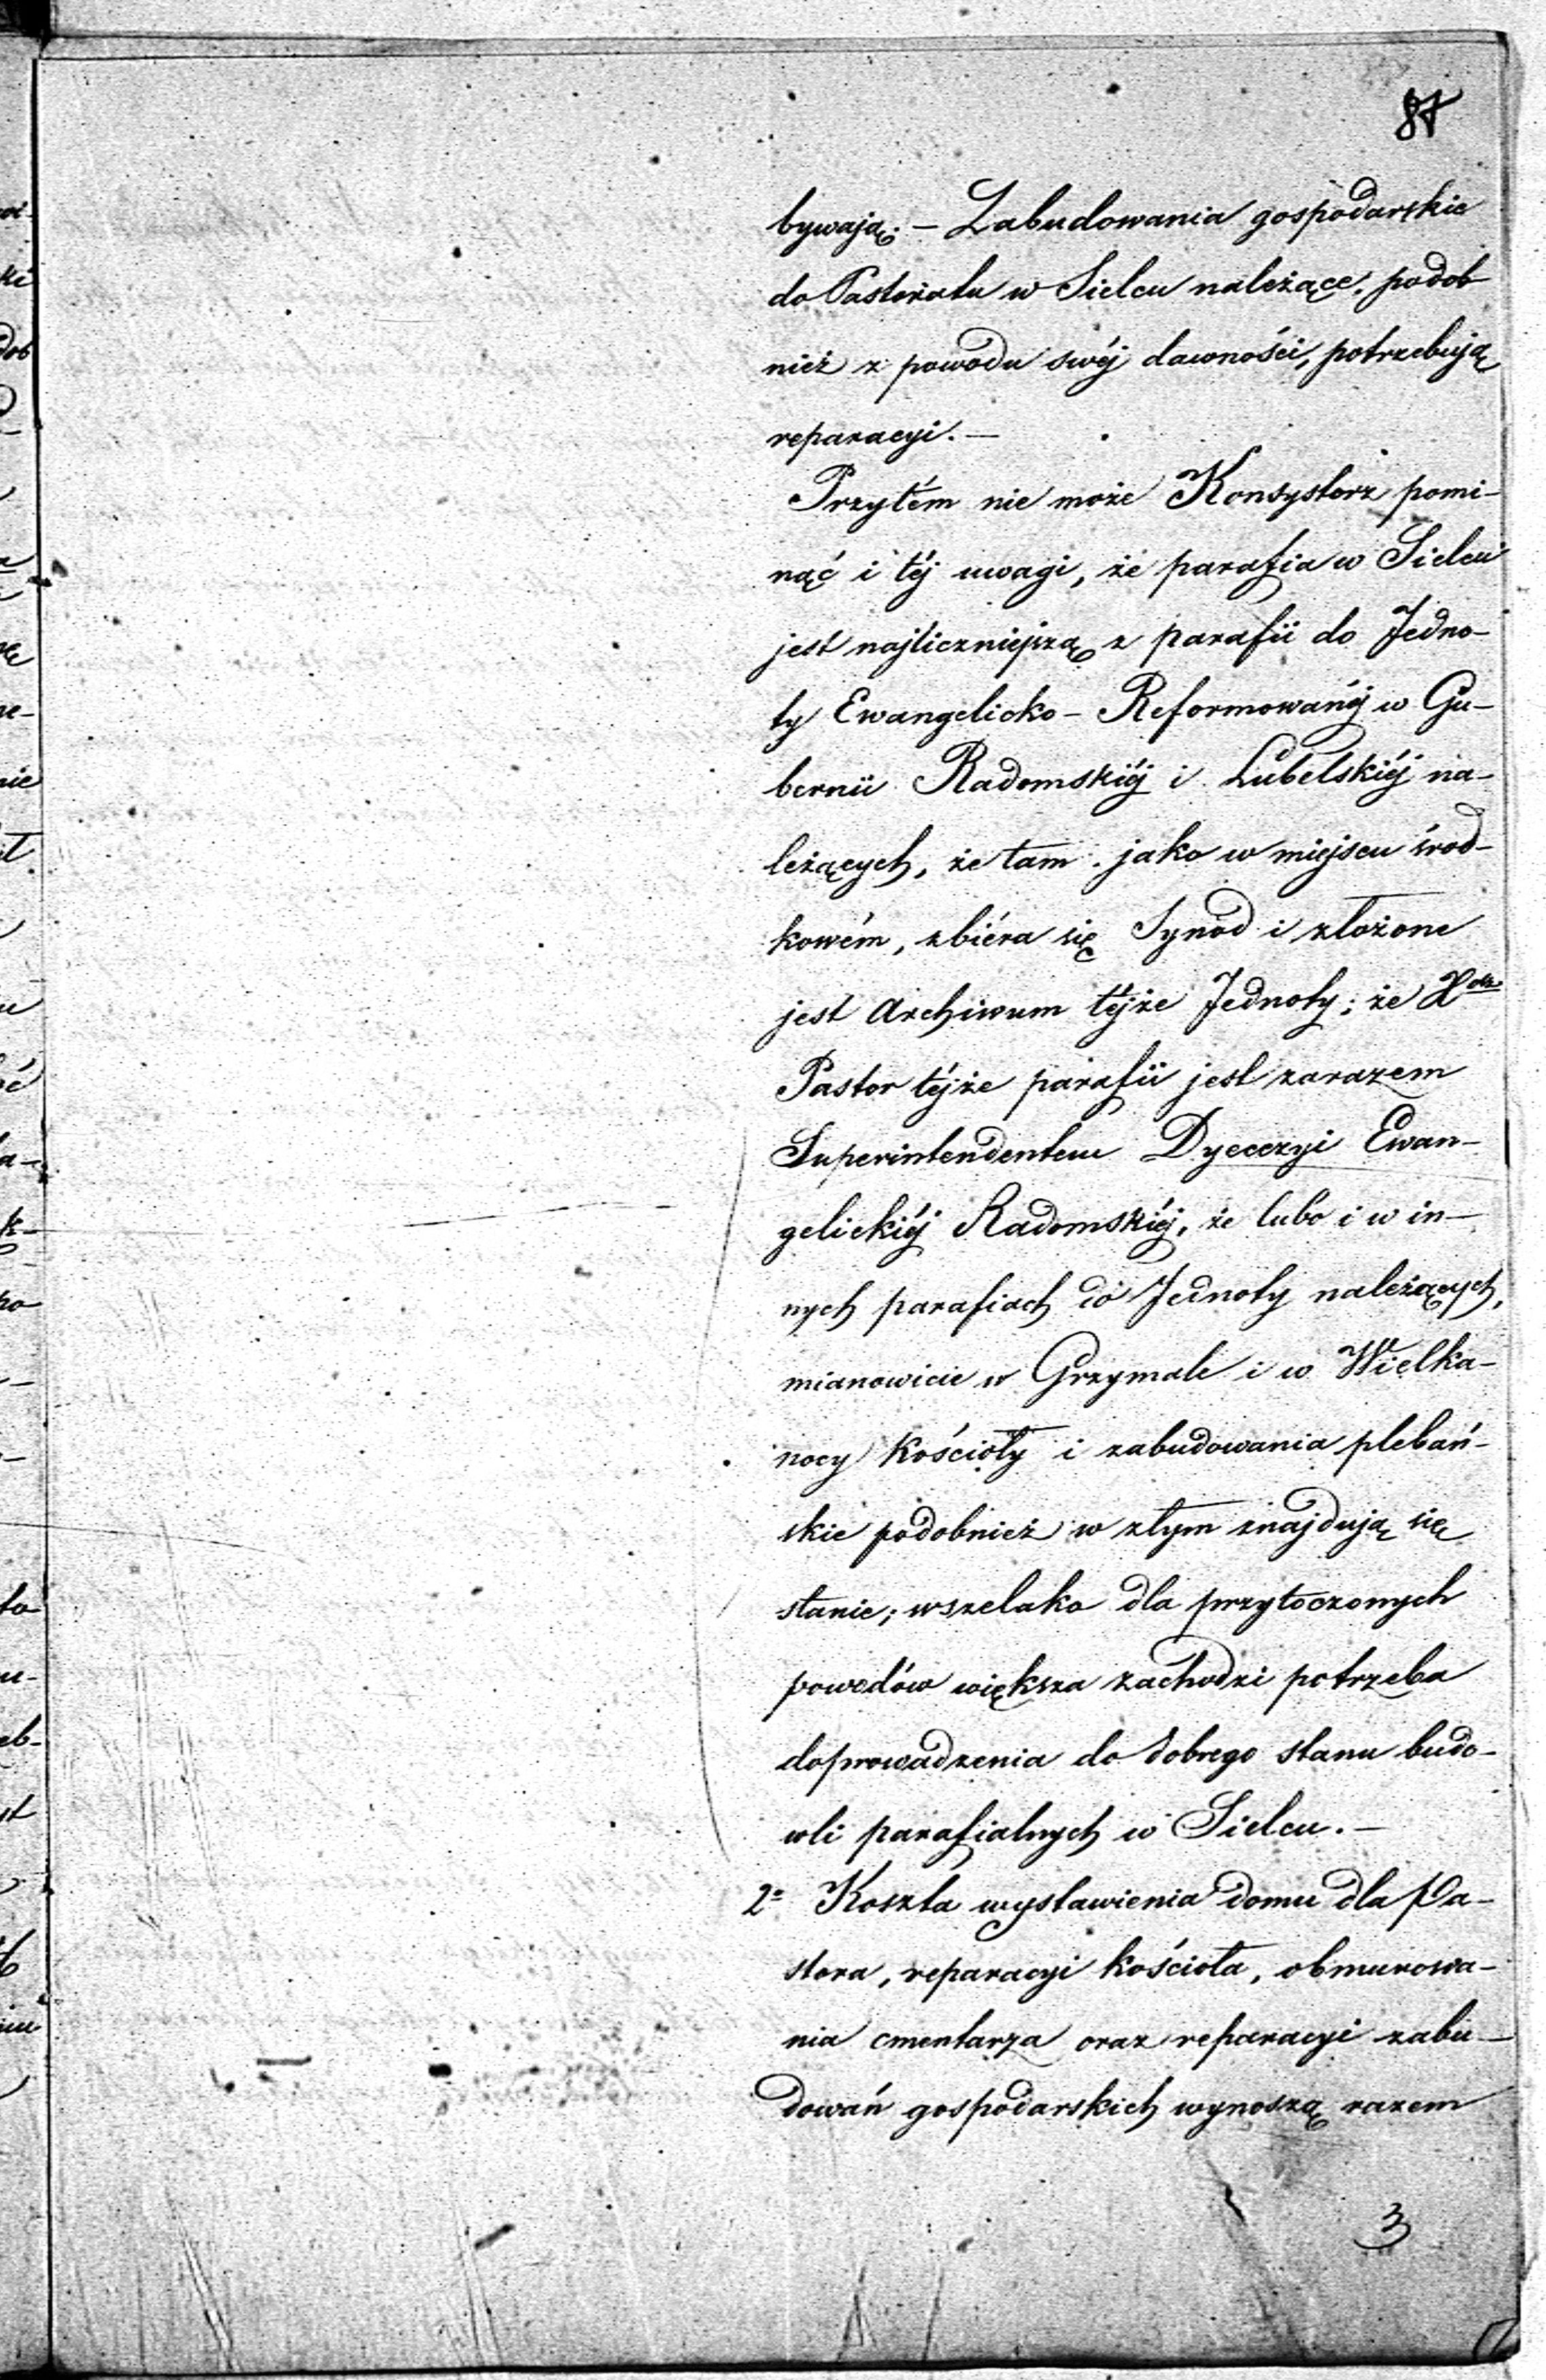 87
bywają. — Zabudowania gospodarskie
do Pastoratu w Sielcu należące, podob
nież z powodu swéj dawności, potrzebują
reparacyi. —
Przytém nie może Konsystorz pomi-
nąć i téj uwagi, że parafia w Sielcu
jest najliczniejszą z parafii do Jedno-
ty Ewangelicko-Reformowanéj w Gu-
bernii Radomskiéj i Lubelskiéj na-
leżących, że tam jako w miejscu środ-
kowém, zbiéra się Synod i złożone
jest Archiwum téjże Jednoty; że
Pastor téjże parafii jest zarazem
Superintendentem Dyecezyi Ewan-
gelickiéj Radomskiéj, że lubo i w in-
nych parafiach do Jednoty należących,
mianowicie w Grzymale i w Wielka-
nocy kościoły i zabudowania plebań-
skie podobnież w złym znajdują się
stanie; wszelako dla przytoczonych
powodów większa zachodzi potrzeba
doprowadzenia do dobrego stanu budo-
wli parafialnych w Sielcu. —
2º Koszta wystawienia domu dla Pa-
stora, reparacyi kościoła, obmurowa-
nia cmentarza oraz reparacyi zabu-
dowań gospodarskich wynoszą razem
3